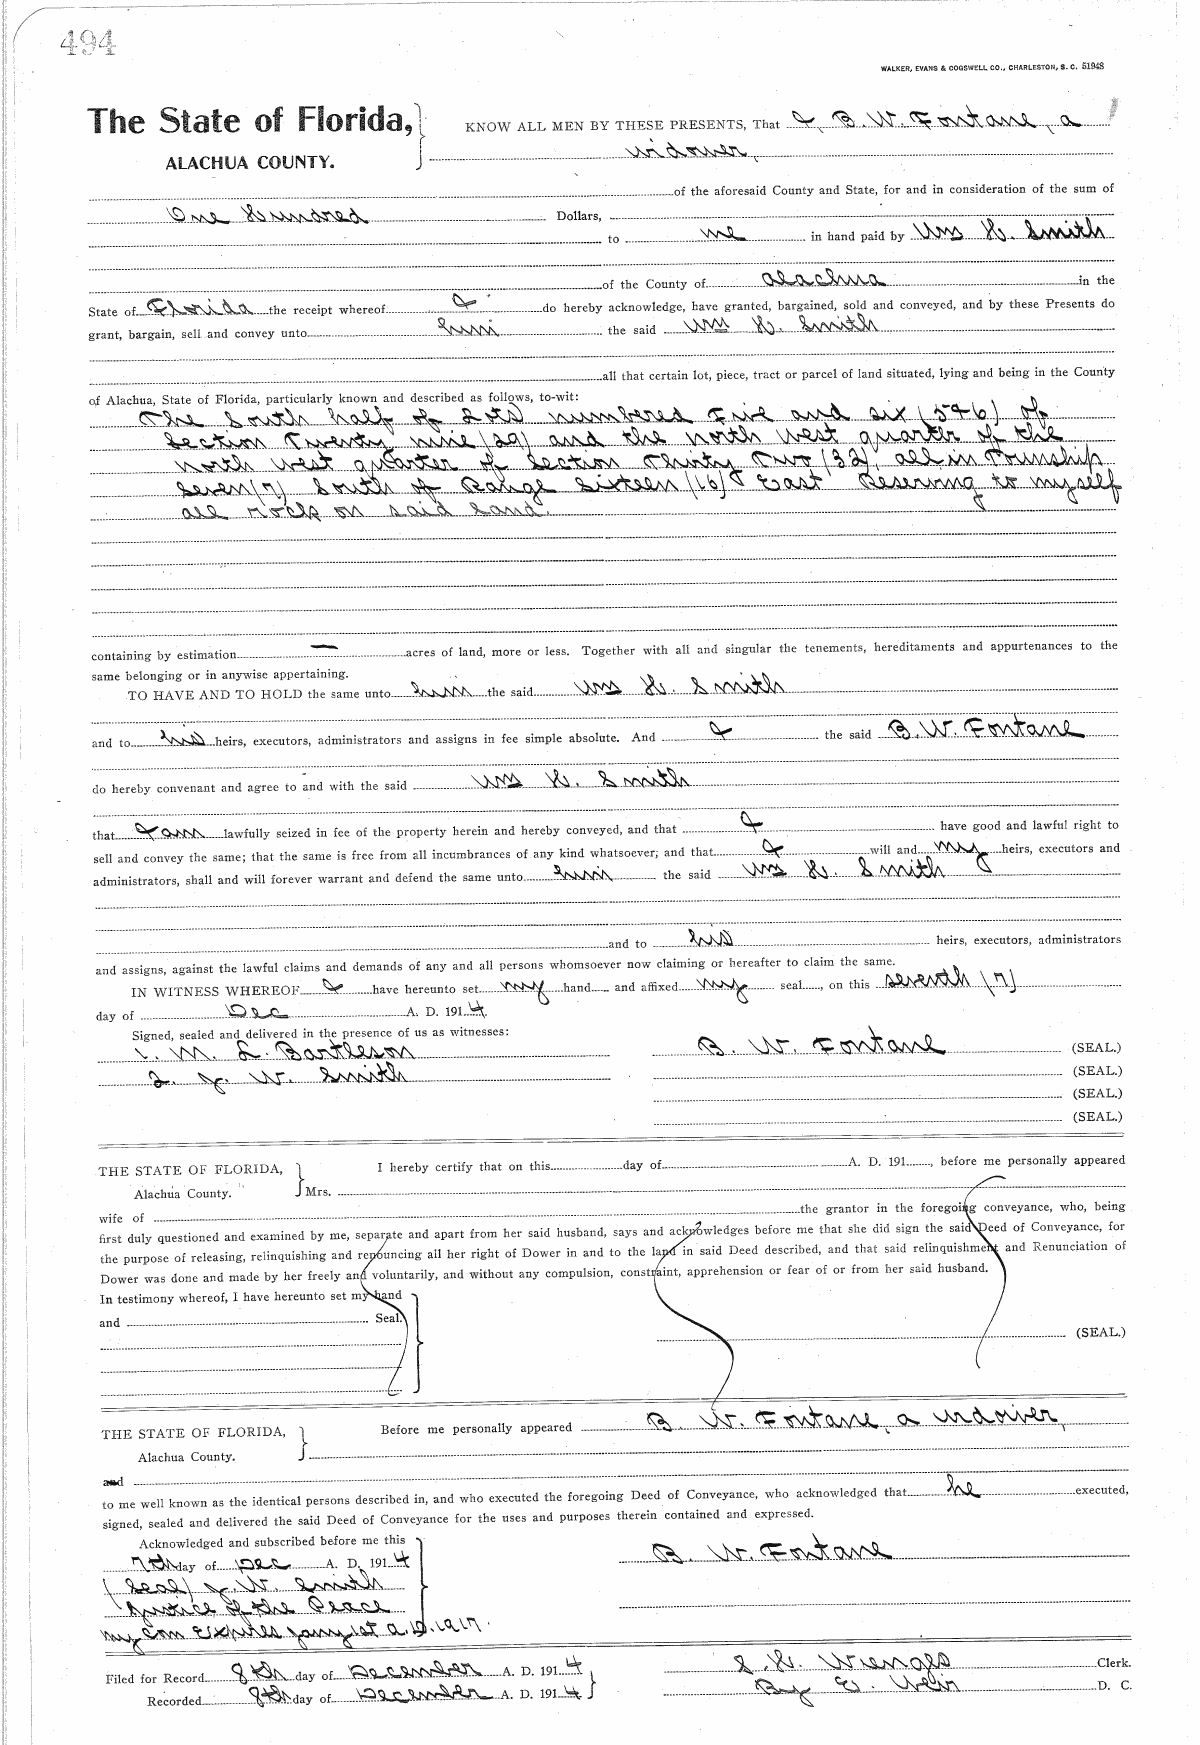 494
WALKER, EVANS & COGSWELL CO., CHARLESTON, S. C. 51948
The State of Florida,
ALACHUA COUNTY.
KNOW ALL MEN BY THESE PRESENTS, That I, B. W. Fontane, a
widower,
of the aforesaid County and State, for and in consideration of the sum of
One Hundred Dollars,
to me in hand paid by Wm H. Smith
of the County of Alachua in the
State of Florida the receipt whereof I do hereby acknowledge, have granted, bargained, sold and conveyed, and by these Presents do
grant, bargain, sell and convey unto him the said Wm H. Smith
all that certain lot, piece, tract or parcel of land situated, lying and being in the County
of Alachua, State of Florida, particularly known and described as follows, to-wit:
The South half of Lots numbered Five and six (5&6) of
Section Twenty nine (29) and the north west quarter of the
north west quarter of Section Thirty Two (32), all in Township
Seven (7) South of Range Sixteen (16) East Reserving to myself
all rock on said land.
containing by estimation — acres of land, more or less. Together with all and singular the tenements, hereditaments and appurtenances to the
same belonging or in anywise appertaining.
TO HAVE AND TO HOLD the same unto him the said Wm H. Smith
and to his heirs, executors, administrators and assigns in fee simple absolute. And I the said B. W. Fontane
do hereby convenant and agree to and with the said Wm H. Smith
that I am lawfully seized in fee of the property herein and hereby conveyed, and that I have good and lawful right to
sell and convey the same; that the same is free from all incumbrances of any kind whatsoever; and that I will and my heirs, executors and
administrators, shall and will forever warrant and defend the same unto him the said Wm H. Smith
and to his heirs, executors, administrators
and assigns, against the lawful claims and demands of any and all persons whomsoever now claiming or hereafter to claim the same.
IN WITNESS WHEREOF I have hereunto set my hand and affixed my seal, on this seventh (7)
day of Dec A. D. 1914.
Signed, sealed and delivered in the presence of us as witnesses:
1. M. L. Bartleson B. W. Fontane (SEAL.)
2. J. W. Smith (SEAL.)
(SEAL.)
(SEAL.)
THE STATE OF FLORIDA, I hereby certify that on this day of A. D. 191 , before me personally appeared
Alachua County. Mrs.
wife of the grantor in the foregoing conveyance, who, being
first duly questioned and examined by me, separate and apart from her said husband, says and acknowledges before me that she did sign the said Deed of Conveyance, for
the purpose of releasing, relinquishing and renouncing all her right of Dower in and to the land in said Deed described, and that said relinquishment and Renunciation of
Dower was done and made by her freely and voluntarily, and without any compulsion, constraint, apprehension or fear of or from her said husband.
In testimony whereof, I have hereunto set my hand
and Seal.
(SEAL.)
THE STATE OF FLORIDA, Before me personally appeared B. W. Fontane, a widower,
Alachua County.
and
to me well known as the identical persons described in, and who executed the foregoing Deed of Conveyance, who acknowledged that he executed,
signed, sealed and delivered the said Deed of Conveyance for the uses and purposes therein contained and expressed.
Acknowledged and subscribed before me this
7th day of Dec A. D. 1914 B. W. Fontane
(Seal) J. W. Smith
Justice of the Peace
my Com Expires Jany 1st A. D. 1917.
Filed for Record 8th day of December A. D. 1914 S. H. Wienges Clerk.
Recorded 8th day of December A. D. 1914 By E. Weir D. C.